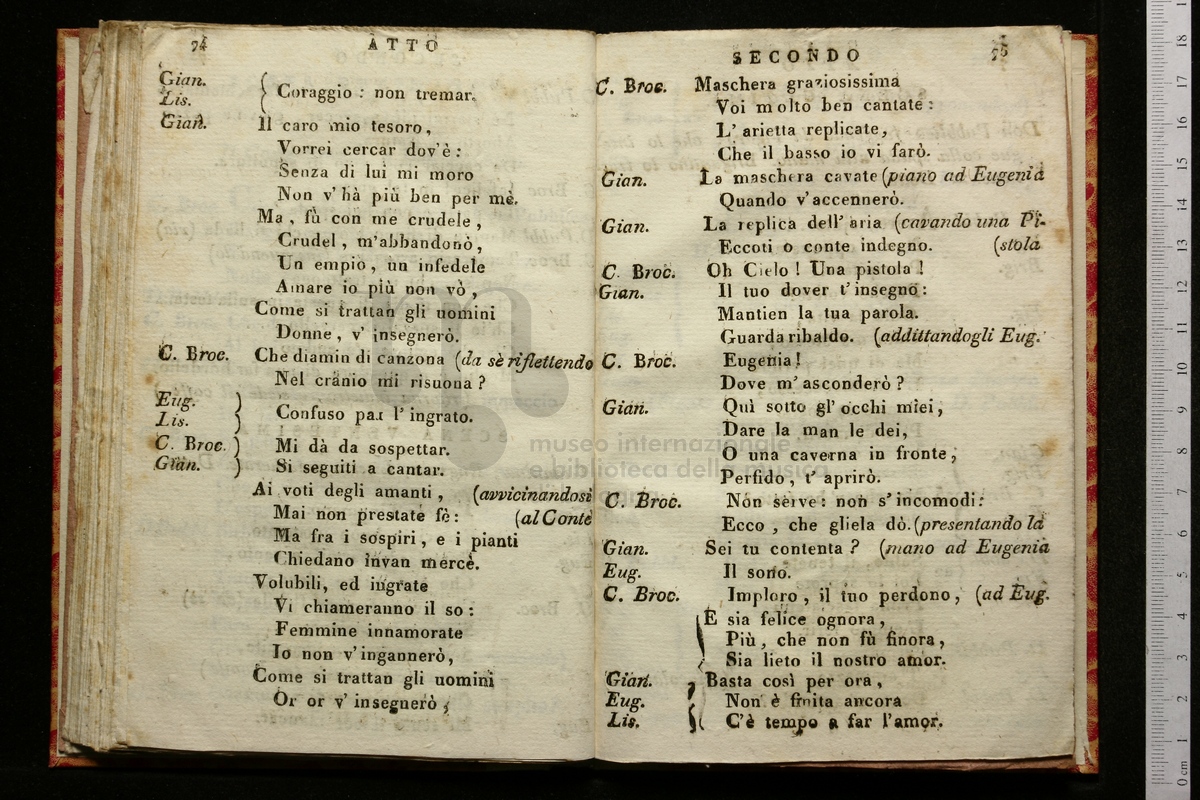 74 ATTO
Gian.
Lis.
Coraggio : non tremar.
Gian. Il caro mio tesoro,
Vorrei cercar dov'è :
Senza di lui mi moro
Non v'hà più ben per mè.
Ma, fù con me crudele,
Crudel, m'abbandonò,
Un empio, un infedele
Amare io più non vò,
Come si trattan gli uomini
Donne, v' insegnerò.
C. Broc. Che diamin di canzona (da sè riflettendo
Nel cranio mi risuona ?
Eug.
Lis.
Confuso par l' ingrato.
C. Broc. Mi dà da sospettar.
Gian. Si seguiti a cantar.
Ai voti degli amanti, (avvicinandosi
Mai non prestate fè : (al Conte
Ma fra i sospiri, e i pianti
Chiedano invan mercè.
Volubili, ed ingrate
Vi chiameranno il so :
Femmine innamorate
Io non v'ingannerò,
Come si trattan gli uomini
Or or v' insegnerò,
SECONDO 75
C. Broc. Maschera graziosissima
Voi molto ben cantate :
L' arietta replicate,
Che il basso io vi farò.
Gian. La maschera cavate (piano ad Eugenia
Quando v'accennerò.
Gian. La replica dell' aria (cavando una Pi-
Eccoti o conte indegno. (stola
C. Broc. Oh Cielo ! Una pistola !
Gian. Il tuo dover t'insegno :
Mantien la tua parola.
Guarda ribaldo. (addittandogli Eug.
C. Broc. Eugenia !
Dove m' asconderò ?
Gian. Quì sotto gl' occhi miei,
Dare la man le dei,
O una caverna in fronte,
Perfido, t' aprirò.
C. Broc. Non serve : non s'incomodi :
Ecco, che gliela dò. (presentando la
Gian. Sei tu contenta ? (mano ad Eugenia
Eug. Il sono.
C. Broc. Imploro, il tuo perdono, (ad Eug.
E sia felice ognora,
Più, che non fù finora,
Sia lieto il nostro amor.
Gian. Basta così per ora,
Eug. Non è finita ancora
Lis. C'è tempo a far l'amor.
museo internazionale
e biblioteca della musica